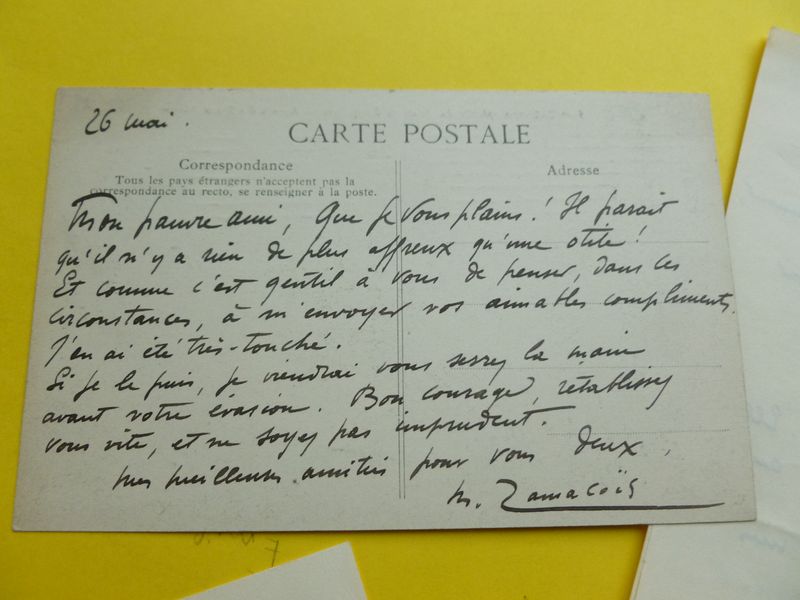 26 mai.
CARTE POSTALE
Correspondance
Tous les pays étrangers n'acceptent pas la
correspondance au recto, se renseigner à la poste.
Adresse
Mon pauvre ami, Que je vous plains! Il parait
qu'il n'y a rien de plus affreux qu'une otite!
Et comme c'est gentil à vous de penser, dans ces
circonstances, à m'envoyer vos aimables compliments.
J'en ai été très-touché.
Si je le puis, je viendrai vous serrer la main
avant votre évasion. Bon courage, rétablissez
vous vite, et ne soyez pas imprudent.
mes meilleures amitiés pour vous deux.
M. Zamacoïs